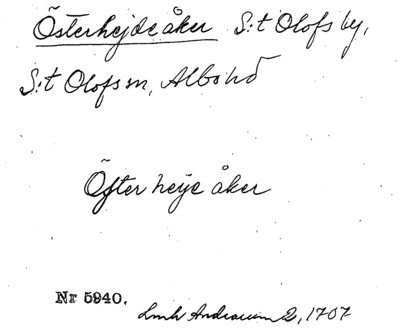 Österhejdeåker S:t Olofs by,
S:t Olofs sn, Albo hd
Öfter heije åker
Nr 5940.
Lmh Andrarum 2, 1707